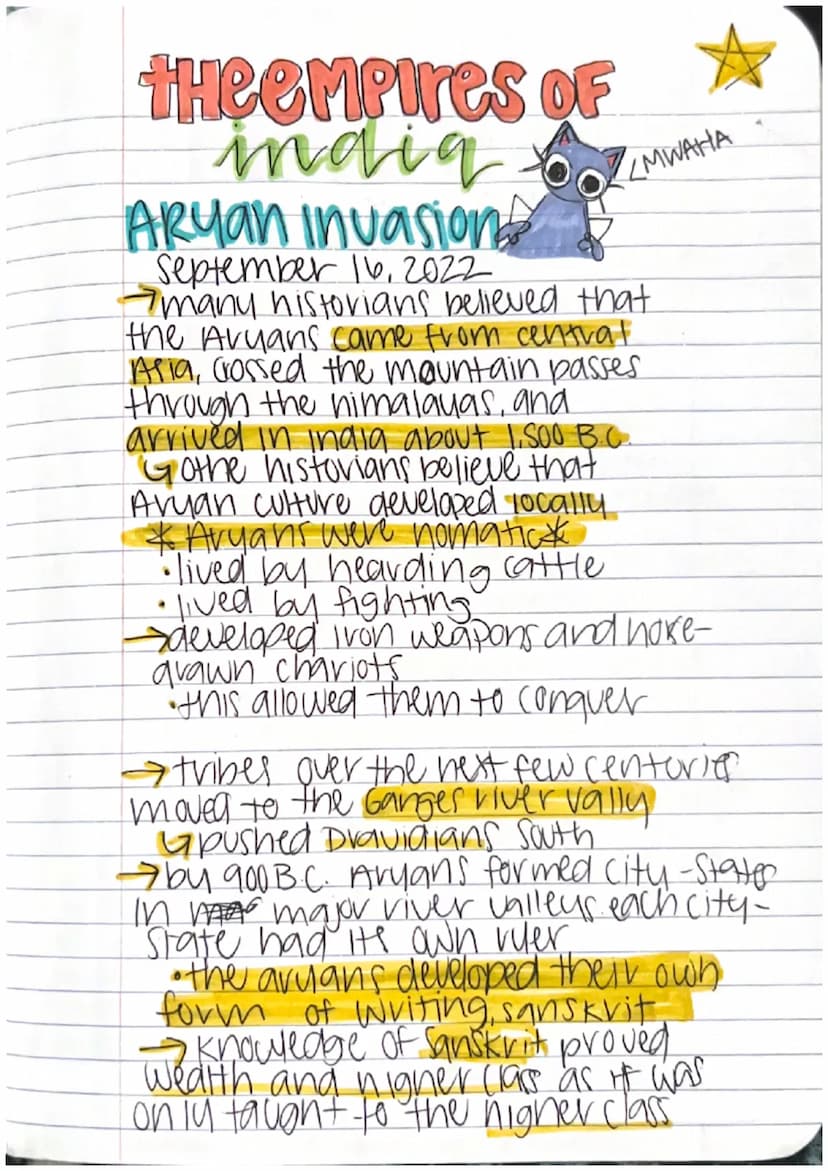 THE EMPIRES OF
india
<MWAHA
ARYAN INVASION
September 16, 2022
→many historians believed that
the Aryans came from central
Asia, crossed the mountain passes
through the himalayas, and
arrived in india about 1,500 B.C.
↳ othe historians believe that
Aryan culture developed locally
*Aryans were nomatic*
•lived by hearding cattle
•lived by fighting
→developed iron weapons and hore-
drawn chariots
•this allowed them to conquer
→tribes over the next few centuries
moved to the Ganges river vally
↳pushed Dravidians South
→by 900 B.C. Aryans formed city-States
in major river valleys. each city-
State had its own ruler
•the aryans developed their own
form of writing, sanskrit
→knowledge of Sanskrit proved
wealth and higher class as it was
only taught to the higher class